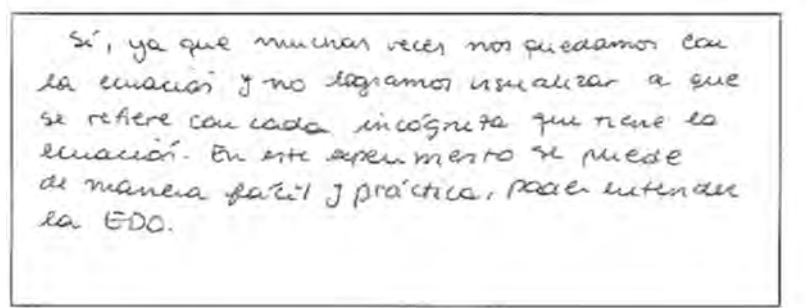 Sí, ya que muchas veces nos quedamos con
la ecuación y no logramos visualizar a que
se refiere con cada incógnita que tiene la
ecuación. En este experimento se puede
de manera fácil y práctica, poder entender
la EDO.